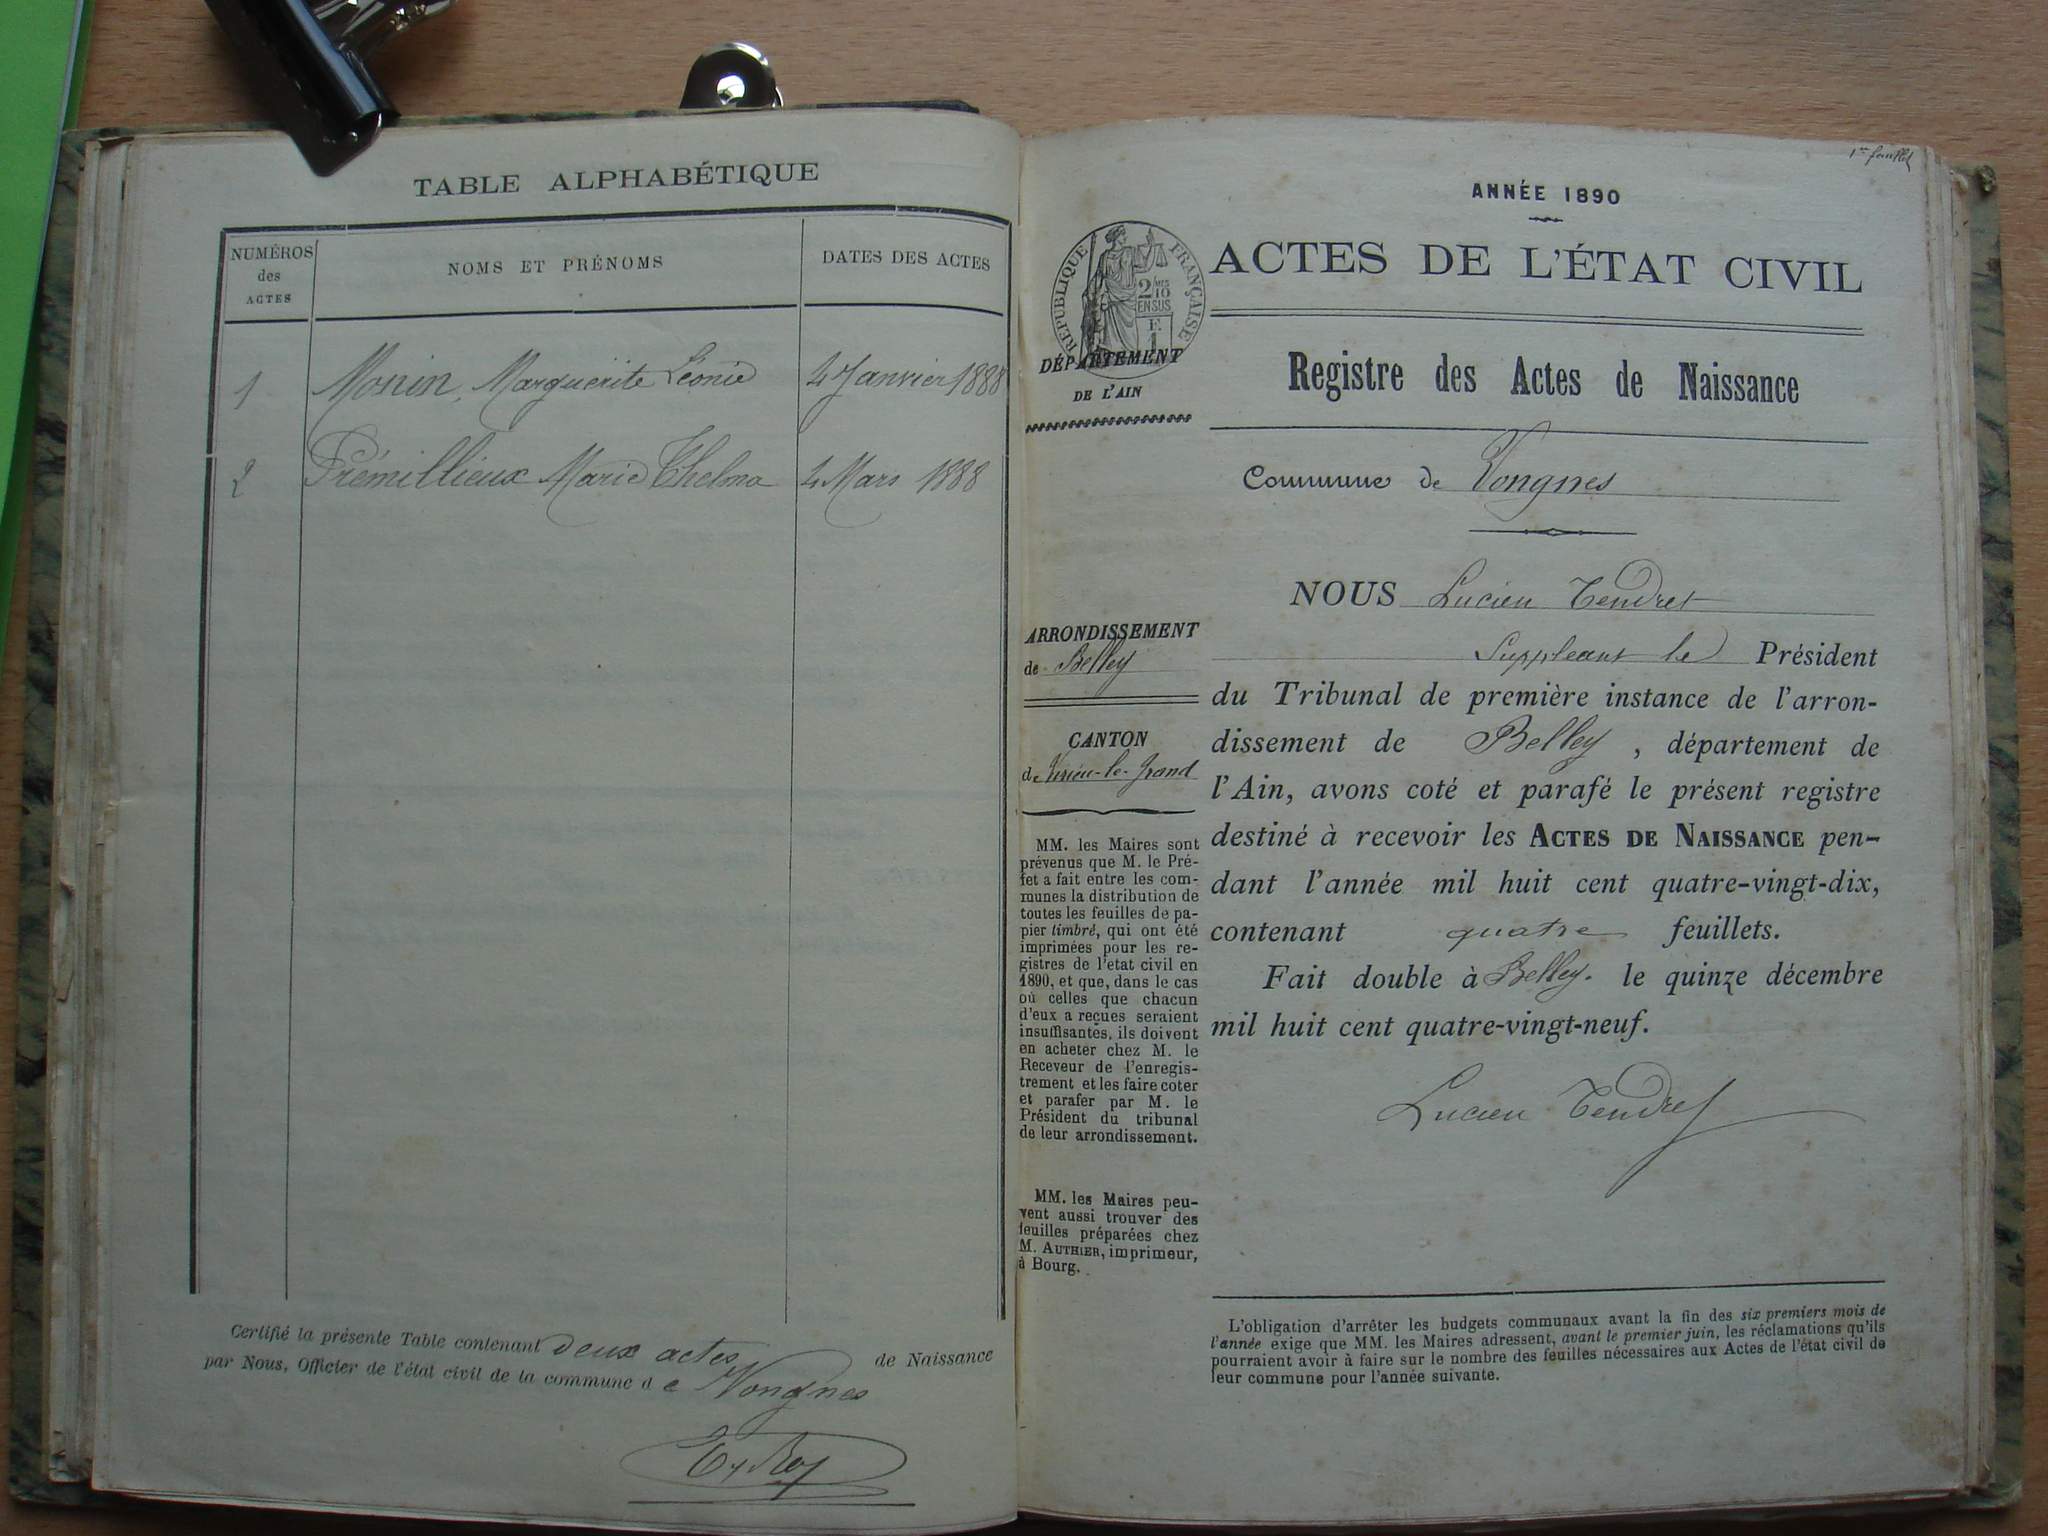 TABLE ALPHABÉTIQUE
NUMÉROS des ACTES
NOMS ET PRÉNOMS
DATES DES ACTES
1 Monin, Marguerite Léonie 4 Janvier 1888
2 Prémillieux Marie Thelma 4 Mars 1888
Certifié la présente Table contenant deux actes de Naissance
par Nous, Officier de l'état civil de la commune de Vongnes
1er feuillet
ANNÉE 1890
RÉPUBLIQUE FRANÇAISE
2/10
EN SUS
F.
1
DÉPARTEMENT
DE L'AIN
ACTES DE L'ÉTAT CIVIL
Registre des Actes de Naissance
Commune de Vongnes
NOUS Lucien Tendret
Suppléant le Président
du Tribunal de première instance de l'arron-
dissement de Belley, département de
l'Ain, avons coté et parafé le présent registre
destiné à recevoir les ACTES DE NAISSANCE pen-
dant l'année mil huit cent quatre-vingt-dix,
contenant quatre feuillets.
Fait double à Belley. le quinze décembre
mil huit cent quatre-vingt-neuf.
Lucien Tendret
ARRONDISSEMENT
de Belley
CANTON
de Virieu-le-Grand
MM. les Maires sont
prévenus que M. le Pré-
fet a fait entre les com-
munes la distribution de
toutes les feuilles de pa-
pier timbré, qui ont été
imprimées pour les re-
gistres de l'état civil en
1890, et que, dans le cas
où celles que chacun
d'eux a reçues seraient
insuffisantes, ils doivent
en acheter chez M. le
Receveur de l'enregis-
trement et les faire coter
et parafer par M. le
Président du tribunal
de leur arrondissement.
MM. les Maires peu-
vent aussi trouver des
feuilles préparées chez
M. AUTHIER, imprimeur,
à Bourg.
L'obligation d'arrêter les budgets communaux avant la fin des six premiers mois de
l'année exige que MM. les Maires adressent, avant le premier juin, les réclamations qu'ils
pourraient avoir à faire sur le nombre des feuilles nécessaires aux Actes de l'état civil de
leur commune pour l'année suivante.